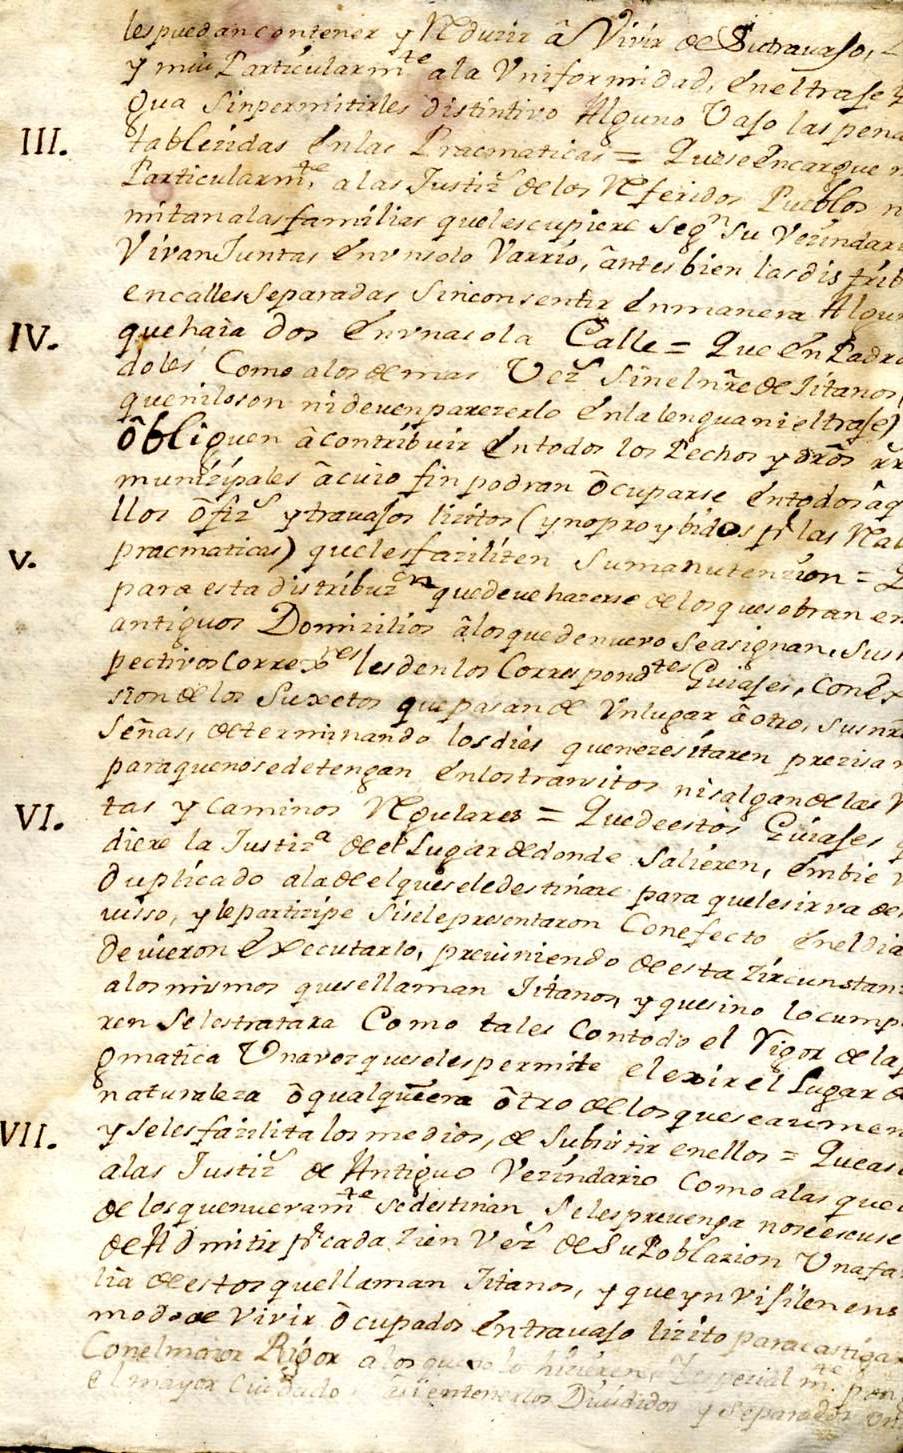 les puedan contener y Reduzir â Vivir de Su travaxo,
y mui Particularmte. ala Vniformidad, en el traxe y
gua Sin permitirles distintivo Alguno Vajo las pena
III. tablezidas en las Pracmaticas = Que se encargue
Particularmte. alas Justizs. de los Referidos Pueblos n
mitan alas familias que les cupiere segn. su Vezindari
Vivan Juntas en vn solo Varrio, ântes bien las distrib
en calles Separadas Sin consentir en manera Algun
IV. que haia dos en vna sola Calle = Que en Padro
doles Como alos demas Vezs. Sin el nre. de Jitanos,
que ni lo son ni deven parezerlo en la lengua ni el traxe)
ôbliguen â contribuir en todos los Pechos y drôs rr
munizipales âcuio fin podran ôcuparse en todos âq
llos ôfizs. y travajos lizitos (y no proybidos pr. las Rea
V. pracmaticas) que les faziliten Su manutenzion =
para esta distribuzn. que deve hazerse de los que sobran en
antiguos Domizilios âlos que de nuevo se asignan, sus
pectivos Correxres. les den los Correspondtes. Guiages, Con Ex
sion de los Suxetos que pasan de Vn lugar â otro, sus nre
Señas, determinando los dias que nezesitaren prezisa
para que no se detengan en los transitos ni salgan de las
VI. tas y caminos Regulares = Que de estos Guiages
diere la Justiza. de el Lugar de donde Salieren, embie
duplicado ala de el que se le destinare para que le sirva de
viso, y le partizipe Si se le presentaron Con efecto en el dia
devieron executarlo, previniendo de esta Zircunstan
alos mismos que se llaman Jitanos, y que si no lo cump
ren Se les tratara Como tales Con todo el Vigor de la
gmatica Una vez que se les permite elexir el Lugar
naturaleza ô qualquiera ôtro de los que
VII. y se les fazilita los medios, de Subsistir en ellos = Que asi
alas Justizs. de Antiguo Vezindario Como alas que
de los que nuevamte. se destinan Se les prevenga no se escuse
de Admitir pr. cada Zien Vezs. de Su Poblazion Una fa
lia de estos que llaman Jitanos, y que ynvijilen en s
modo de Vivir ôcupados en travajo lizito para castigar
Con el maior Rigor alos que no lo hizieren, Espezialmte. pon
el mayor Cuidado en tenerlos Divididos y Separados